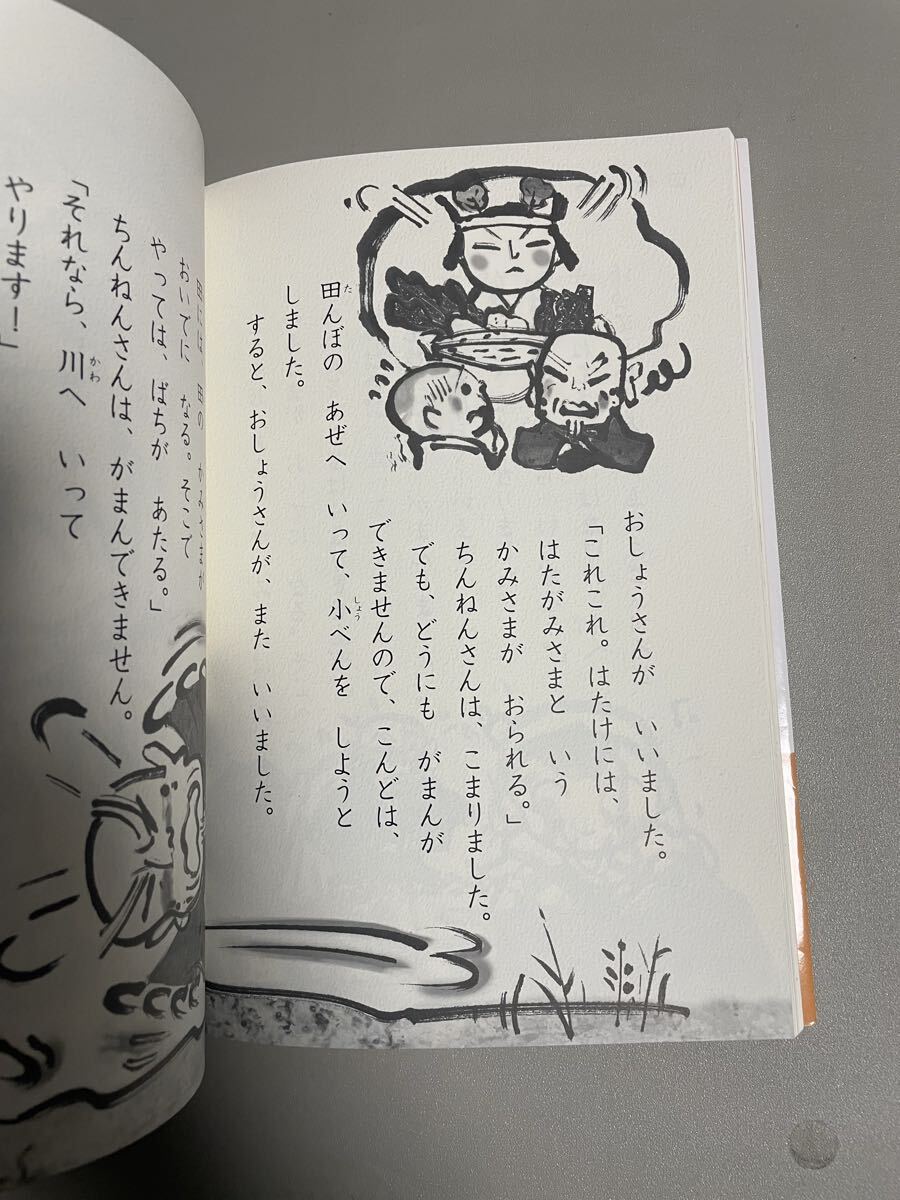 おしょうさんが いいました。
「これこれ。はたけには、
はたがみさまと いう
かみさまが おられる。」
ちんねんさんは、こまりました。
でも、どうにも がまんが
できませんので、こんどは、
田んぼの あぜへ いって、小べんを しようと
しました。
すると、おしょうさんが、また いいました。
田には 田の かみさまが
おいでに なる。そこで
やっては、ばちが あたる。」
ちんねんさんは、がまんできません。
「それなら、川へ いって
やります！」